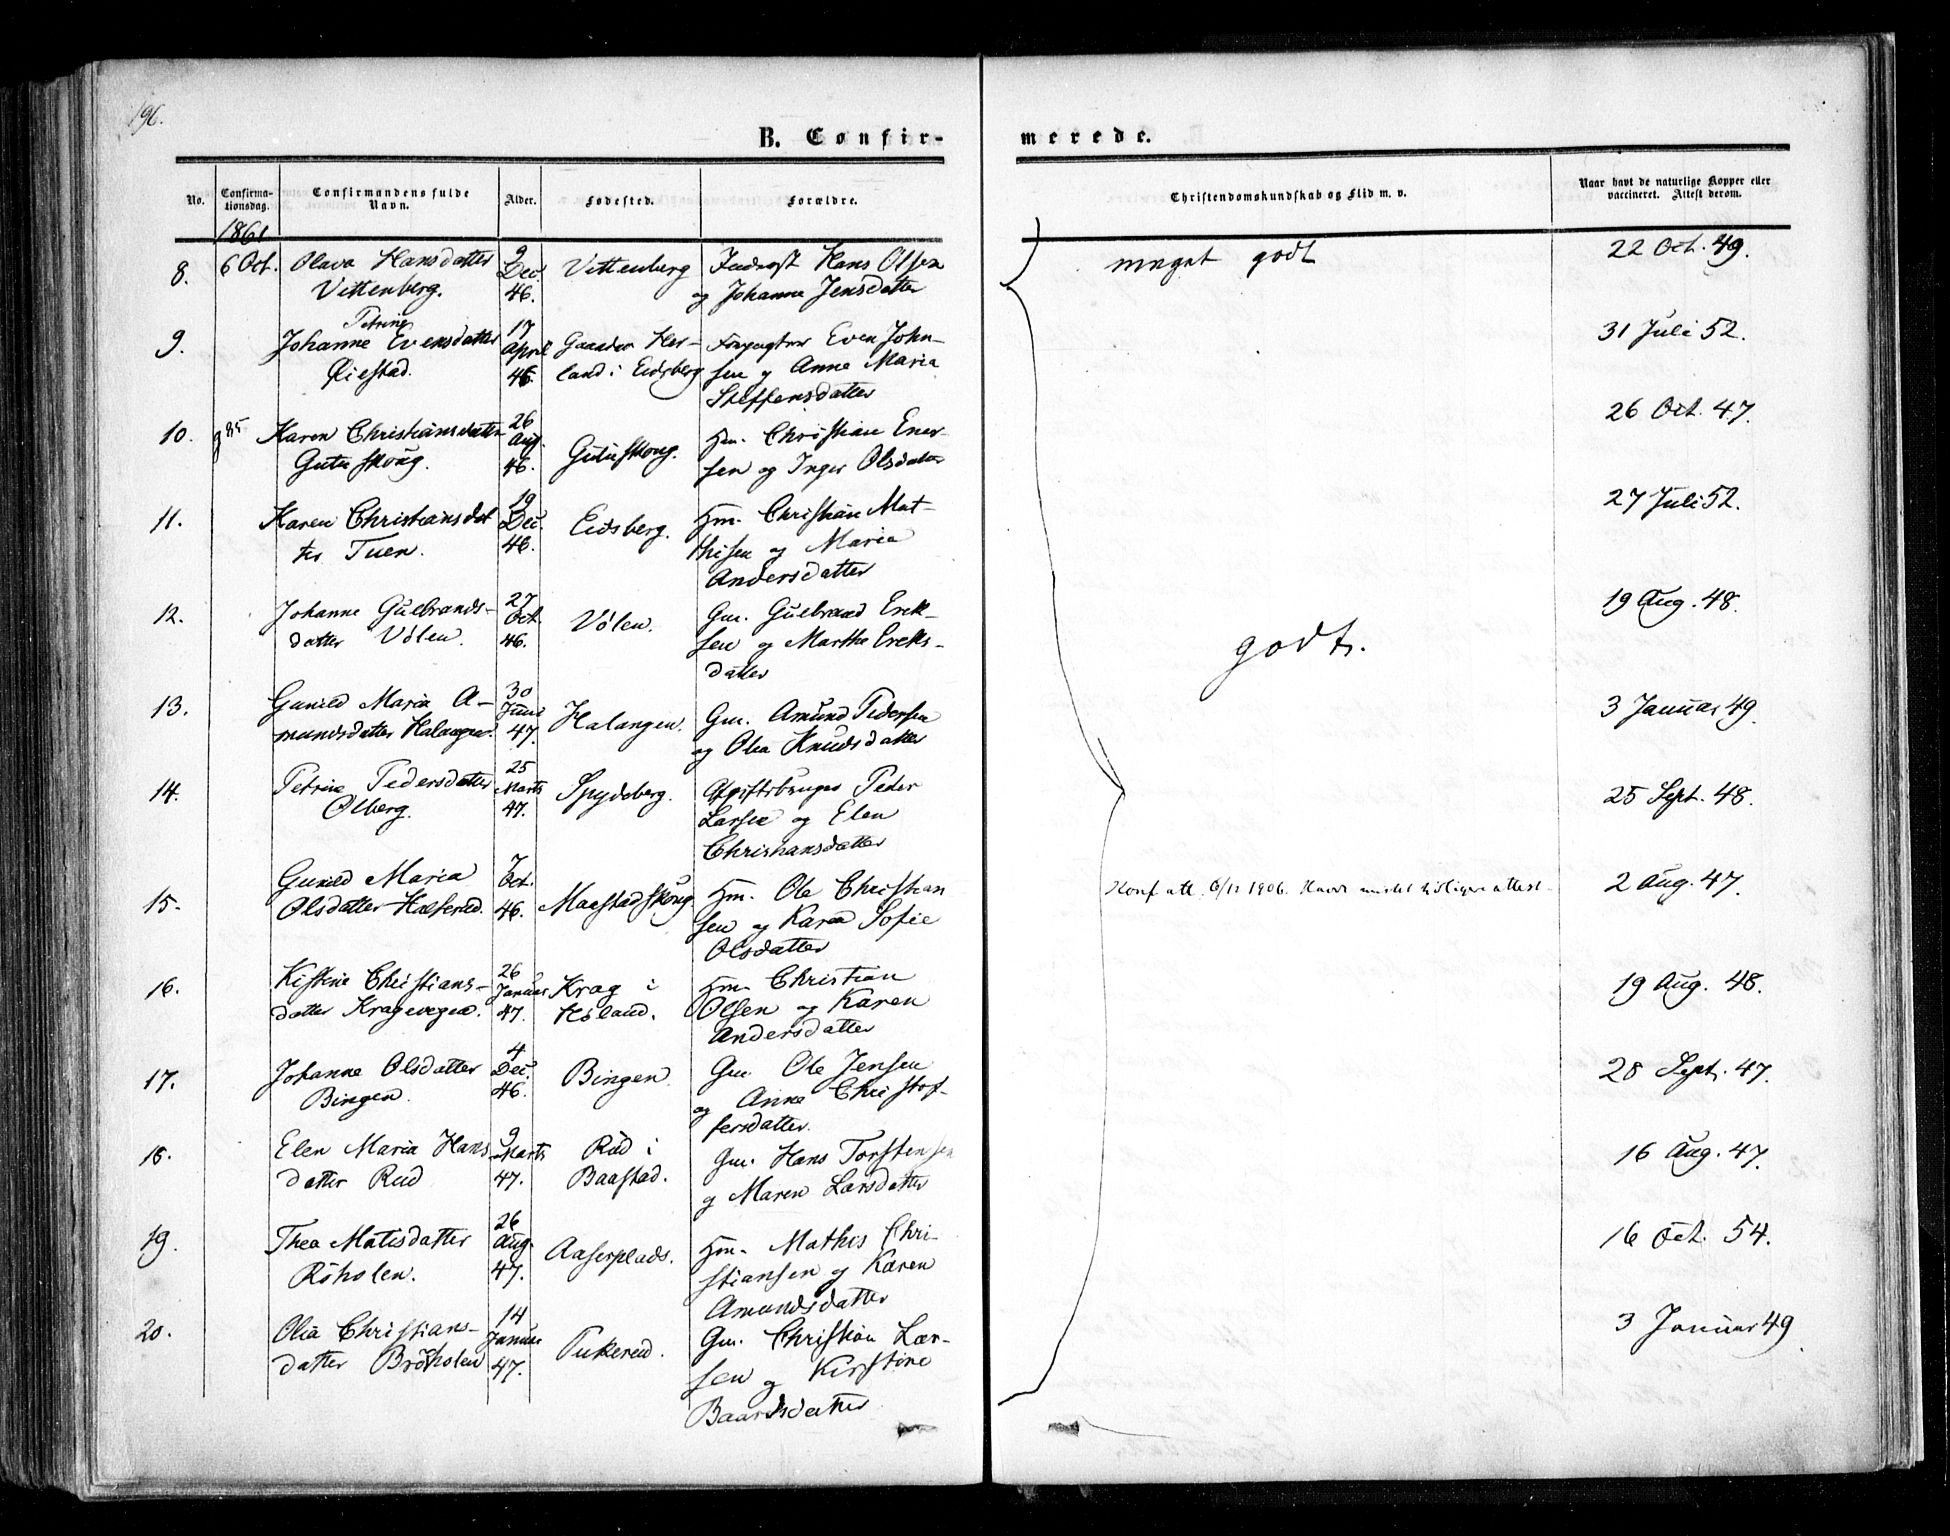 196.
B. Confir-
merede.
No.
Confirma-
tionsdag.
Confirmandens fulde
Navn.
Alder.
Fødested.
Forældre.
Christendomskundskab og Flid m. v.
Naar havt de naturlige Kopper eller
vaccineret. Attest derom.
1861
8. 6 Oct. Olava Hansdatter
Vittenberg.
9
Dec.
46.
Vittenberg
Hans Olsen
og Johanne Jensdatter
meget godt
22 Oct. 49.
9.
Petrine
Johanne Evensdatter
Øiestad.
17
April
46.
Gaarden Her-
land i Eidsberg
Forpagter Even John-
sen og Anne Maria
Steffensdatter
31 Juli 52.
10.
Karen Christiansdatter
Gutuskoug.
26
Aug.
46.
Gutuskoug.
Hm. Christian Ener-
sen og Inger Olsdatter
26 Oct. 47.
11.
Karen Christiansdat
ter Tuen.
19
Dec.
46.
Eidsberg.
Hm. Christian Mat-
thisen og Maria
Andersdatter
27 Juli 52.
12.
Johanne Gulbrands-
datter Vølen.
27
Oct.
46.
Vølen.
Gm. Gulbrand Erik-
sen og Marthe Eriks-
datter
godt.
19 Aug. 48.
13.
Gunild Maria A-
mundsdatter Halangen.
30
Juni
47.
Halangen.
Gm. Amund Pedersen
og Olea Knudsdatter
3 Januar 49.
14.
Petrine Pedersdatter
Olberg.
25
Marts
47.
Spydeberg.
Afgiftsbruger Peder
Larsen og Elen
Christiansdatter
25 Sept. 48.
15.
Gunild Maria
Olsdatter
7
Oct.
46.
Maastadskoug
Hm. Ole Christian
sen og Karen Sofie
Olsdatter
Konf att. 6/12 1906. Havde mistet tidligere attest.
2 Aug. 47.
16.
Kistine Christians-
datter Kragevegen.
26
Januar
47.
Krog i
Høland.
Hm. Christian
Olsen og Karen
Andersdatter
19 Aug. 48.
17.
Johanne Olsdatter
Bingen.
4
Dec.
46.
Bingen.
Gm. Ole Jensen
og Anne Christof-
fersdatter.
28 Sept. 47.
18.
Elen Maria Hans
datter Rud
9
Marts
47.
Rud i
Baastad.
Gm. Hans Torstensen
og Maren Larsdatter
16 Aug. 47.
19.
Thea Matisdatter
Røholen.
26
Aug.
47.
Aaserplads.
Hm. Mathis Chri-
stiansen og Karen
Amundsdatter
16 Oct. 54.
20.
Olia Christians-
datter Brøholen
14
Januar
47.
Tukerud.
Gm. Christian Lar-
sen og Kirstine
Baardsdatter
3 Januar 49.